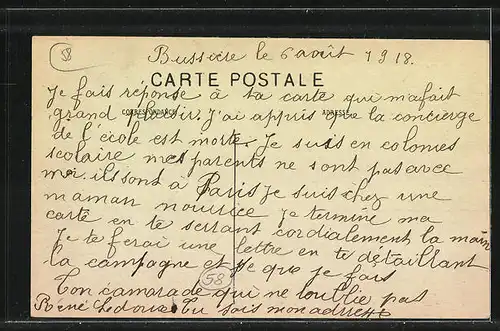 58
Bussière le 6 août 1918.
CARTE POSTALE
Je fais réponse à ta carte qui m'a fait
CORRESPONDANCE ADRESSE
grand plaisir. J'ai appris que la concierge
de l'école est morte. Je suis en colonies
scolaire mes parents ne sont pas avec
moi. ils sont à Paris je suis chez une
maman nourice je termine ma
carte en te serrant cordialement la main
Je te ferai une lettre en te détaillant
la campagne et ce que je fais
58
Ton camarade qui ne t'oublie pas
René Ledoux. Tu sais mon adresse